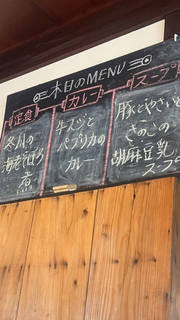 本日のMENU
定食
冬瓜の
海老そぼろ
煮
カレー
牛スジと
パプリカの
カレー
スープ
豚とやさいと
きのこの
胡麻豆乳
スープ